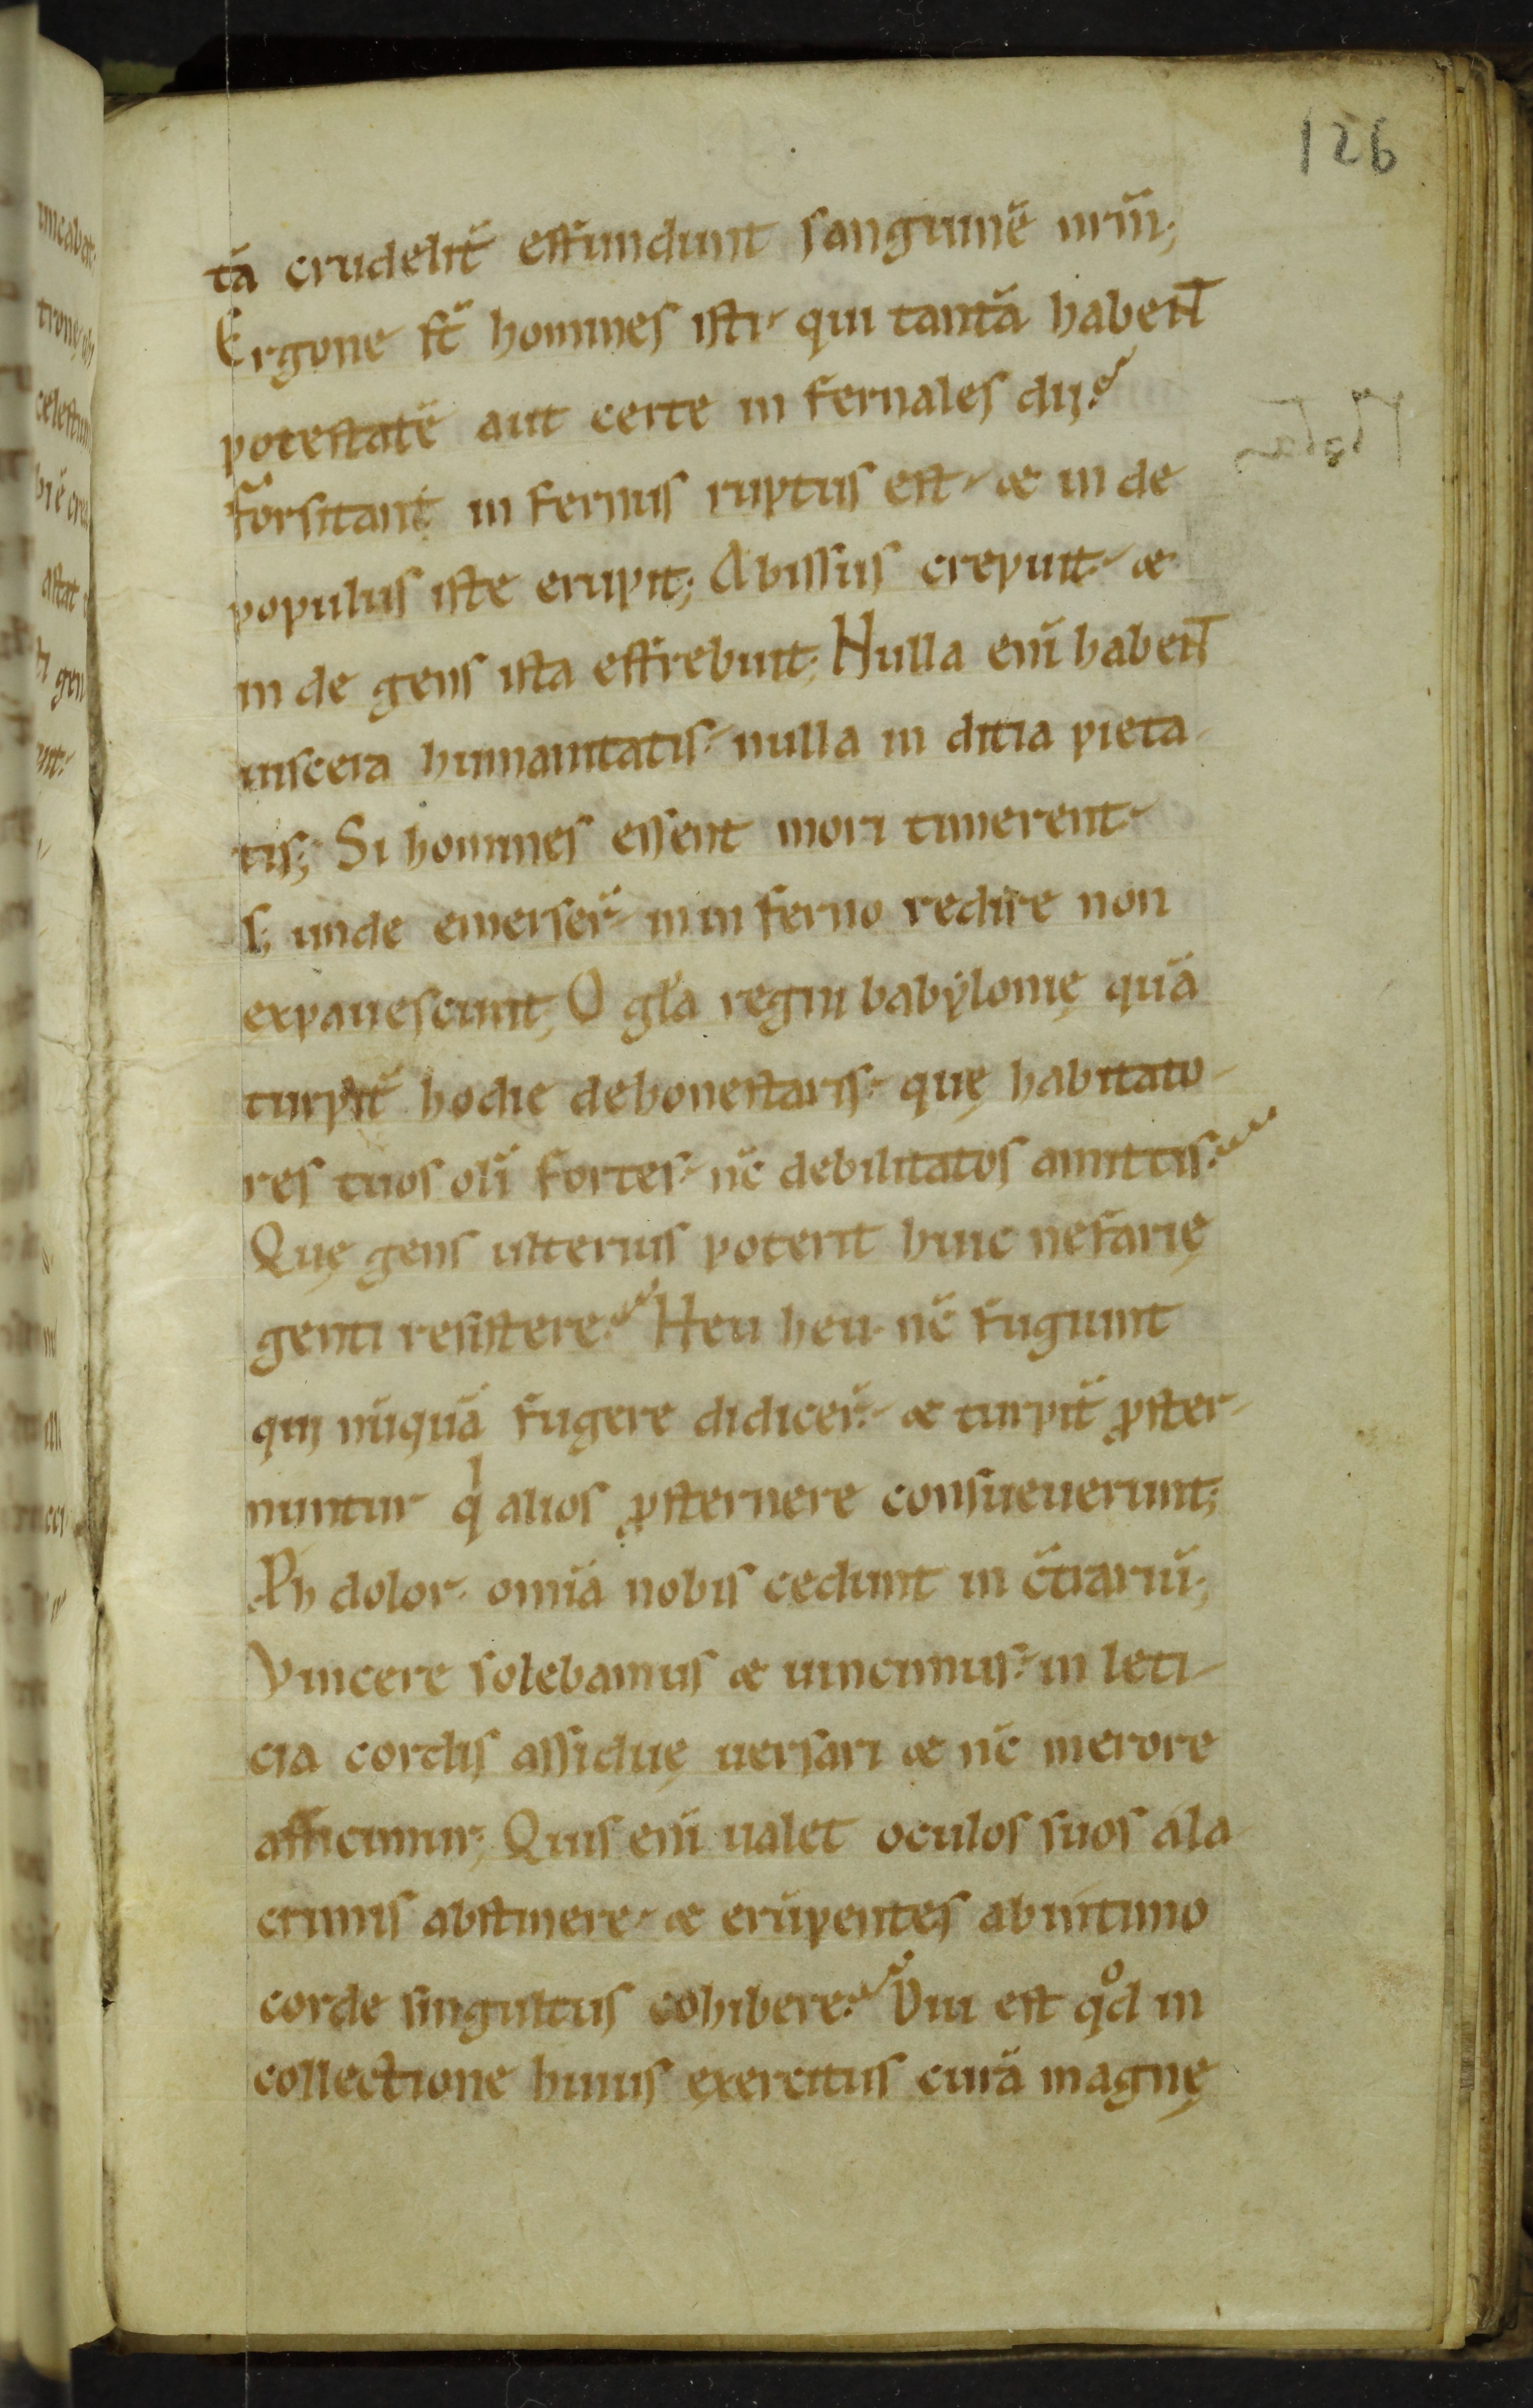 126
tā crudelit̄ effundunt sanguinē nrm̄;
Ergone st̄ homines isti· qui tantā habent
potestatē aut certe in fernales dii?
forsitant in fernus ruptus est· & in de
populus iste erupit; Abissus crepuit· &
in de gens ista effrebuit; Nulla enī habent
uiscera humanitatis· nulla in ditia pieta-
tis; Si homines essent mori timerent·
s; unde emerser̄· in in ferno redire non
expauescunt; O gl̄a regni babẏlonię quā
turpit̄ hodie dehonestaris· quę habitato-
res tuos oli̅ fortes· nc̄ debilitatos amittis?
Quę gens ulterius poterit huic nefarię
genti resistere? Heu heu· nc̄ fugiunt
qui nūquā fugere didicer̄· & turpit̄ ꝓster-
nuntur q alios ꝓsternere consueuerunt;
Ph dolor· omīa nobis cedunt in c̄trariū;
Vincere solebamus & uincimur· in leti-
cia cordis assiduę uersari & nc̄ merore
afficimur; Quis enī ualet oculos suos a la
crimis abstinere· & erūpentes ab intimo
corde singultus cohibere? Diu est qd in
collectione huius exercitus curā magnę